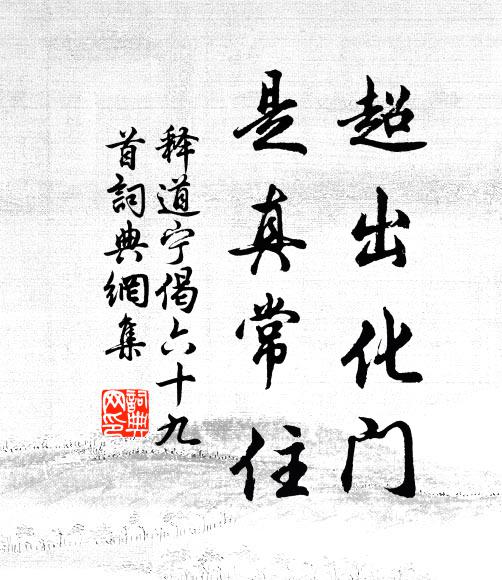 超出化门
是真常住
释道宁偈六十九
首詞典網集
詞典
网印